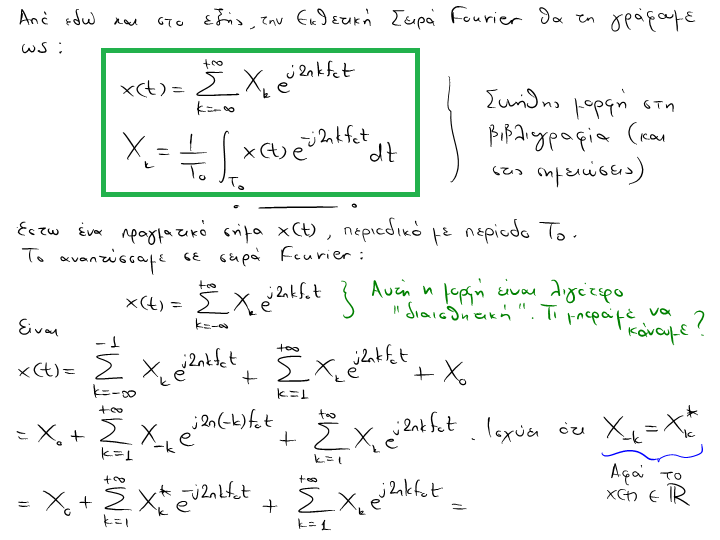 Από εδώ και στο εξής, την Εκθετική Σειρά Fourier θα τη γράφουμε
ως:
x(t) = Σ_{k=-∞}^{+∞} X_k e^{j2πkf₀t}
X_k = 1/T₀ ∫_{T₀} x(t) e^{-j2πkf₀t} dt
} Συνήθης μορφή στη
βιβλιογραφία (και
στις σημειώσεις)
Έστω ένα πραγματικό σήμα x(t), περιοδικό με περίοδο T₀.
Το αναπτύσσουμε σε σειρά Fourier:
x(t) = Σ_{k=-∞}^{+∞} X_k e^{j2πkf₀t} } Αυτή η μορφή είναι λιγότερο
"διαισθητική". Τι μπορούμε να
κάνουμε?
Είναι
x(t) = Σ_{k=-∞}^{-1} X_k e^{j2πkf₀t} + Σ_{k=1}^{+∞} X_k e^{j2πkf₀t} + X₀
= X₀ + Σ_{k=1}^{+∞} X_{-k} e^{j2π(-k)f₀t} + Σ_{k=1}^{+∞} X_k e^{j2πkf₀t}. Ισχύει ότι X_{-k} = X_k^*
Αφού το
x(t) ∈ ℝ
= X₀ + Σ_{k=1}^{+∞} X_k^* e^{-j2πkf₀t} + Σ_{k=1}^{+∞} X_k e^{j2πkf₀t} =